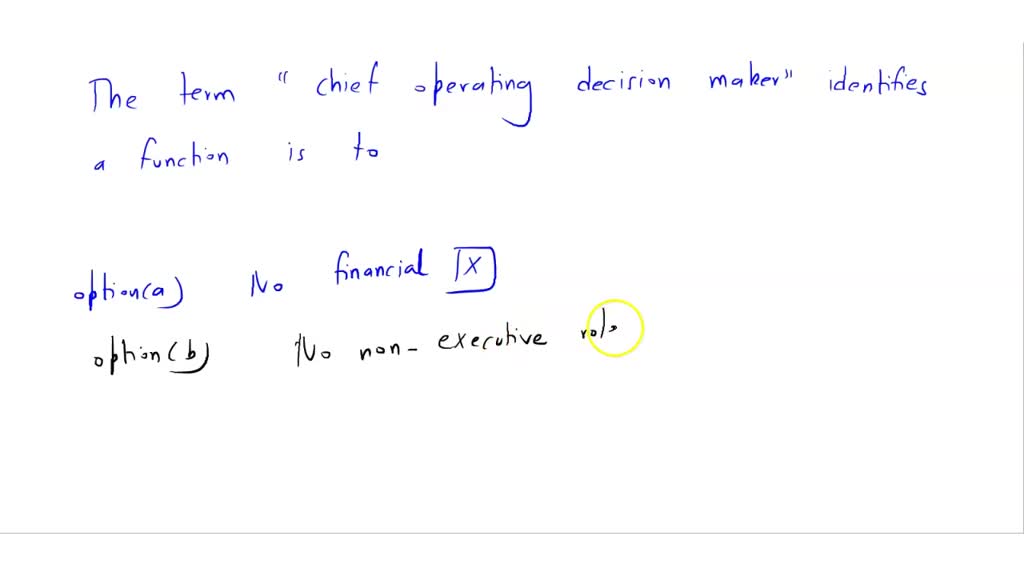 The term "chief operating decision maker" identifies
a function is to
option(a) No financial X
option(b) No non-executive role